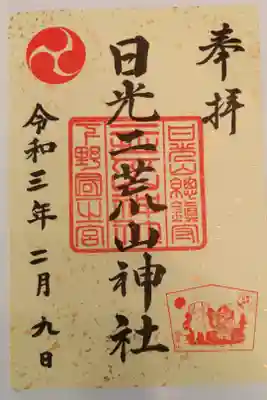 奉拝
日光山總鎮守
日光二荒山神社
下野國一之宮
令和三年二月九日